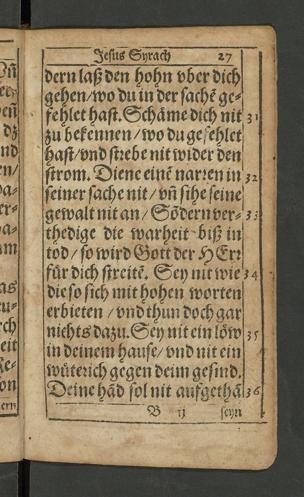 Jesus Syrach 27
dern laß den hohn vber dich
gehen/wo du in der sachẽ ge-
fehlet hast. Schäme dich nit 31
zu bekennen/wo du gefehlet
hast/vnd strebe nit wider den
strom. Diene einẽ narren in 32
seiner sache nit/vñ sihe seine
gewalt nit an/Sõdern ver- 33
thedige die warheit biß in
tod/so wird Gott der HErr
für dich streitẽ. Sey nit wie 34
die so sich mit hohen worten
erbieten/vnd thun doch gar
nichts dazu. Sey nit ein löw 35
in deinem hause/vnd nit ein
wüterich gegen deim gesind.
Deine hãd sol nit aufgethã 36
B ij seyn